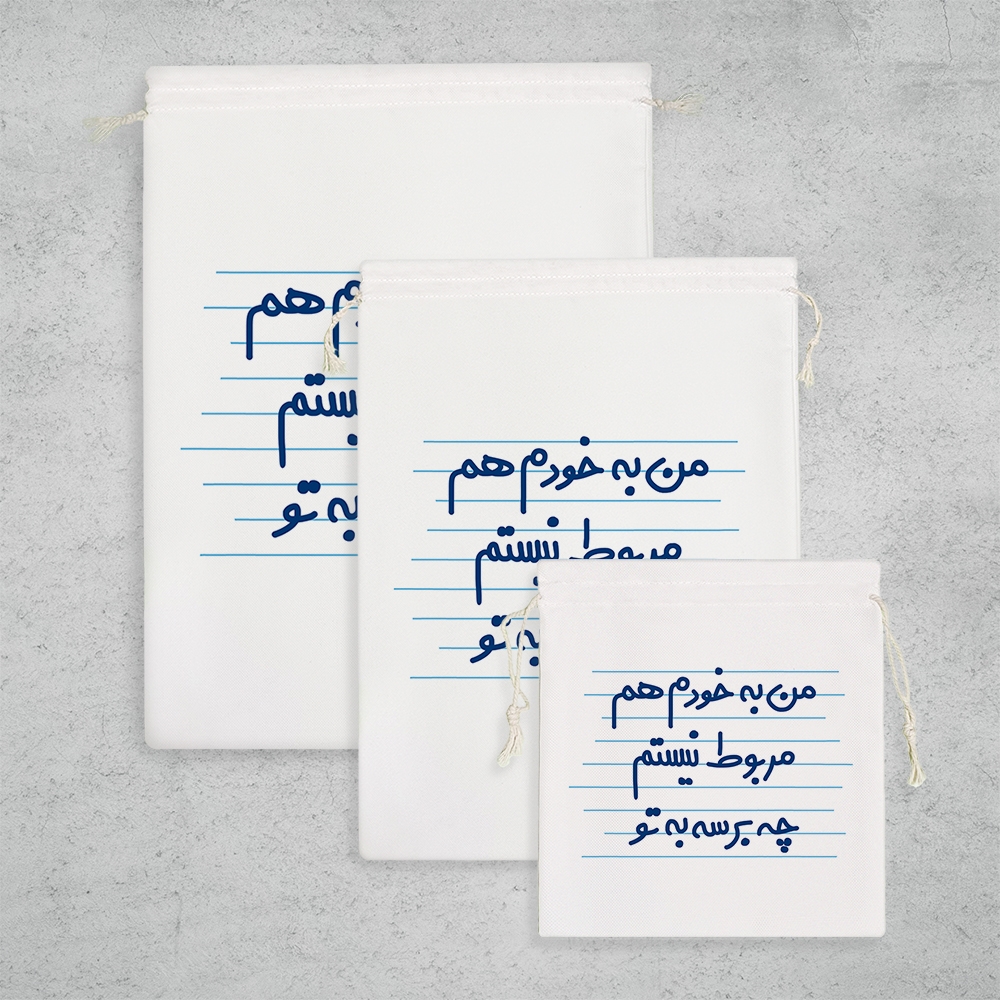 من به خودم هم
مربوط نیستم
چه برسه به تو
من به خودم هم
مربوط نیستم
به تو
م هم
یستم
به تو